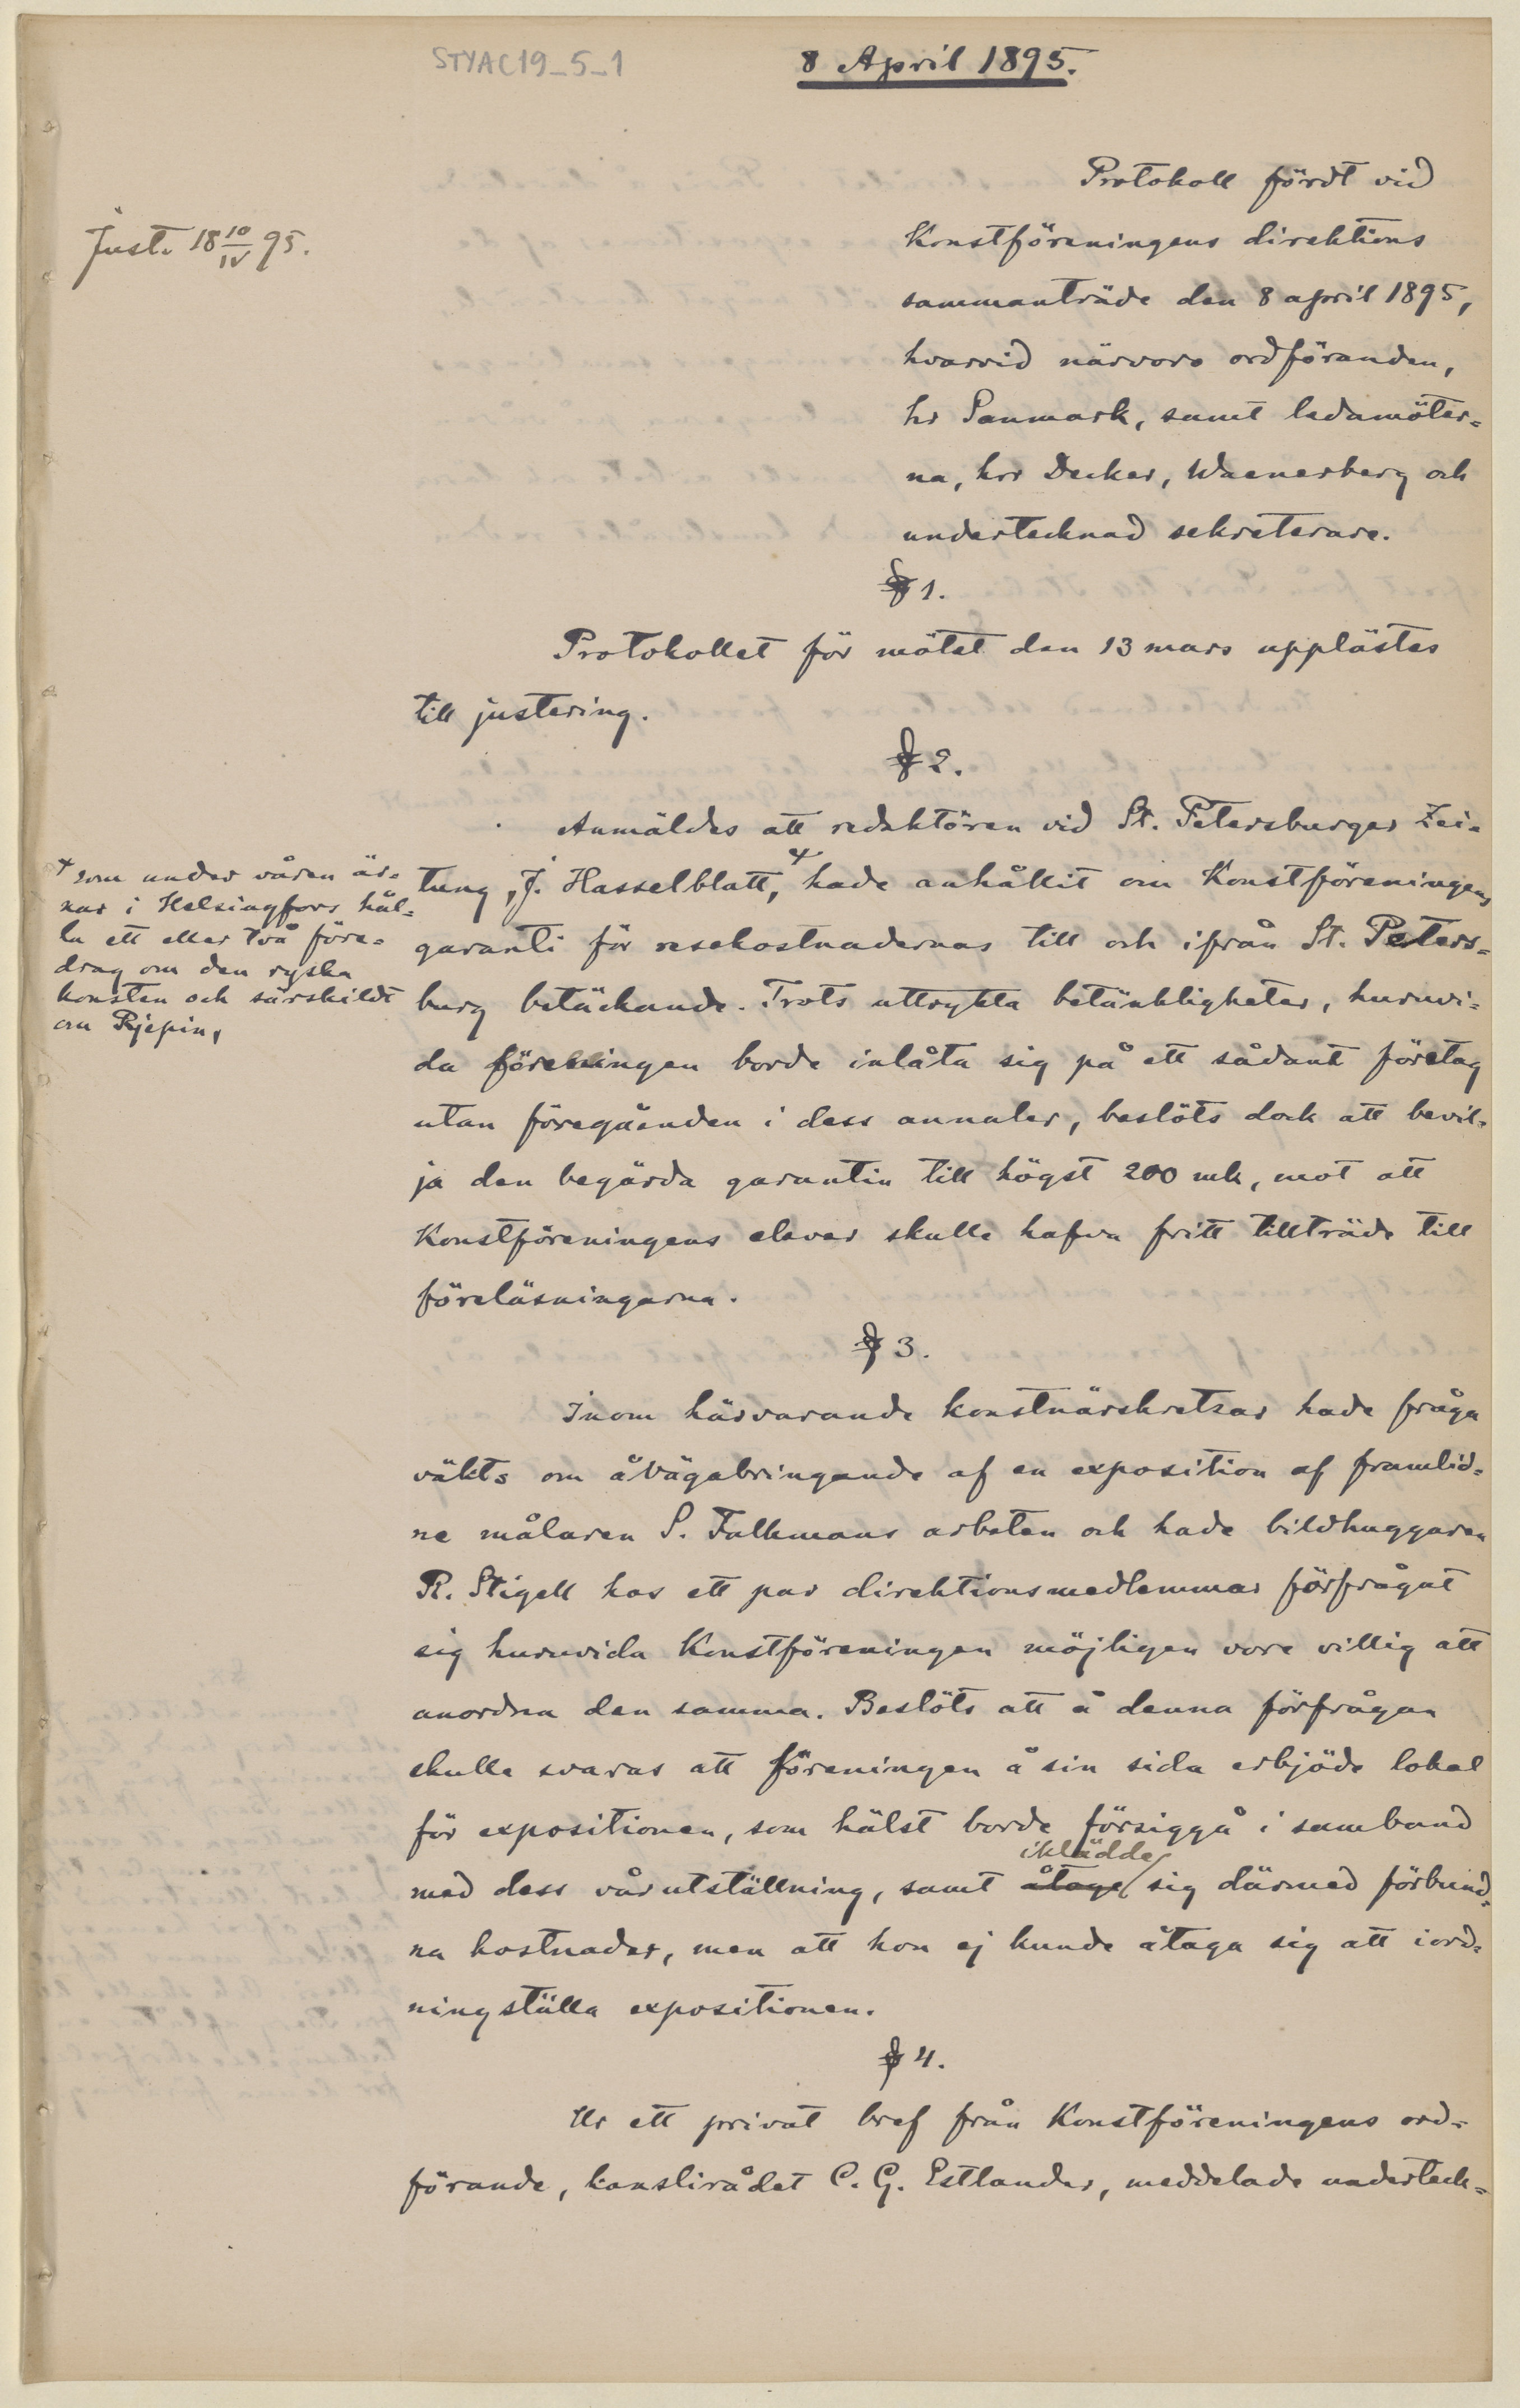 STYAC19_5_1
8 April 1895.
Just. 18 10/IV 95.
Protokoll fördt vid
Konstföreningens direktions
sammanträde den 8 april 1895,
hvarvid närvoro ordföranden,
hr Sanmark, samt ledamöter=
na, hrr Decker, Waenerberg och
undertecknad sekreterare.
§ 1.
Protokollet för mötet den 13 mars upplästes
till justering.
§ 2.
Anmäldes att redaktören vid St. Petersburger Zei=
tung, J. Hasselblatt, + hade anhållit om Konstföreningens
garanti för resekostnadernas till och ifrån St. Peters=
burg betäckande. Trots uttrykta betänkligheter, huruvi=
da föreningen borde inlåta sig på ett sådant företag
utan föregåenden i dess annaler, beslöts dock att bevil=
ja den begärda garantin till högst 200 mk, mot att
Konstföreningens elever skulle hafva fritt tillträde till
föreläsningarna.
+ som under våren är=
nar i Helsingfors hål=
la ett eller två före=
drag om den ryska
konsten och särskildt
om Rjepin,
§ 3.
Inom härvarande konstnärskretsar hade fråga
väkts om åvägabringande af en exposition af framlid=
ne målaren S. Falkmans arbeten och hade bildhuggaren
R. Stigell hos ett par direktionsmedlemmar förfrågat
sig huruvida Konstföreningen möjligen vore villig att
anordna den samma. Beslöts att å denna förfrågan
skulle svaras att föreningen å sin sida erbjöde lokal
för expositionen, som hälst borde försiggå i samband
iklädde
med dess vårutställning, samt åtoge sig därmed förbund=
na kostnader, men att hon ej kunde åtaga sig att iord=
ningställa expositionen.
§ 4.
Ur ett privat bref från Konstföreningens ord=
förande, kanslirådet C. G. Estlander, meddelade underteck=